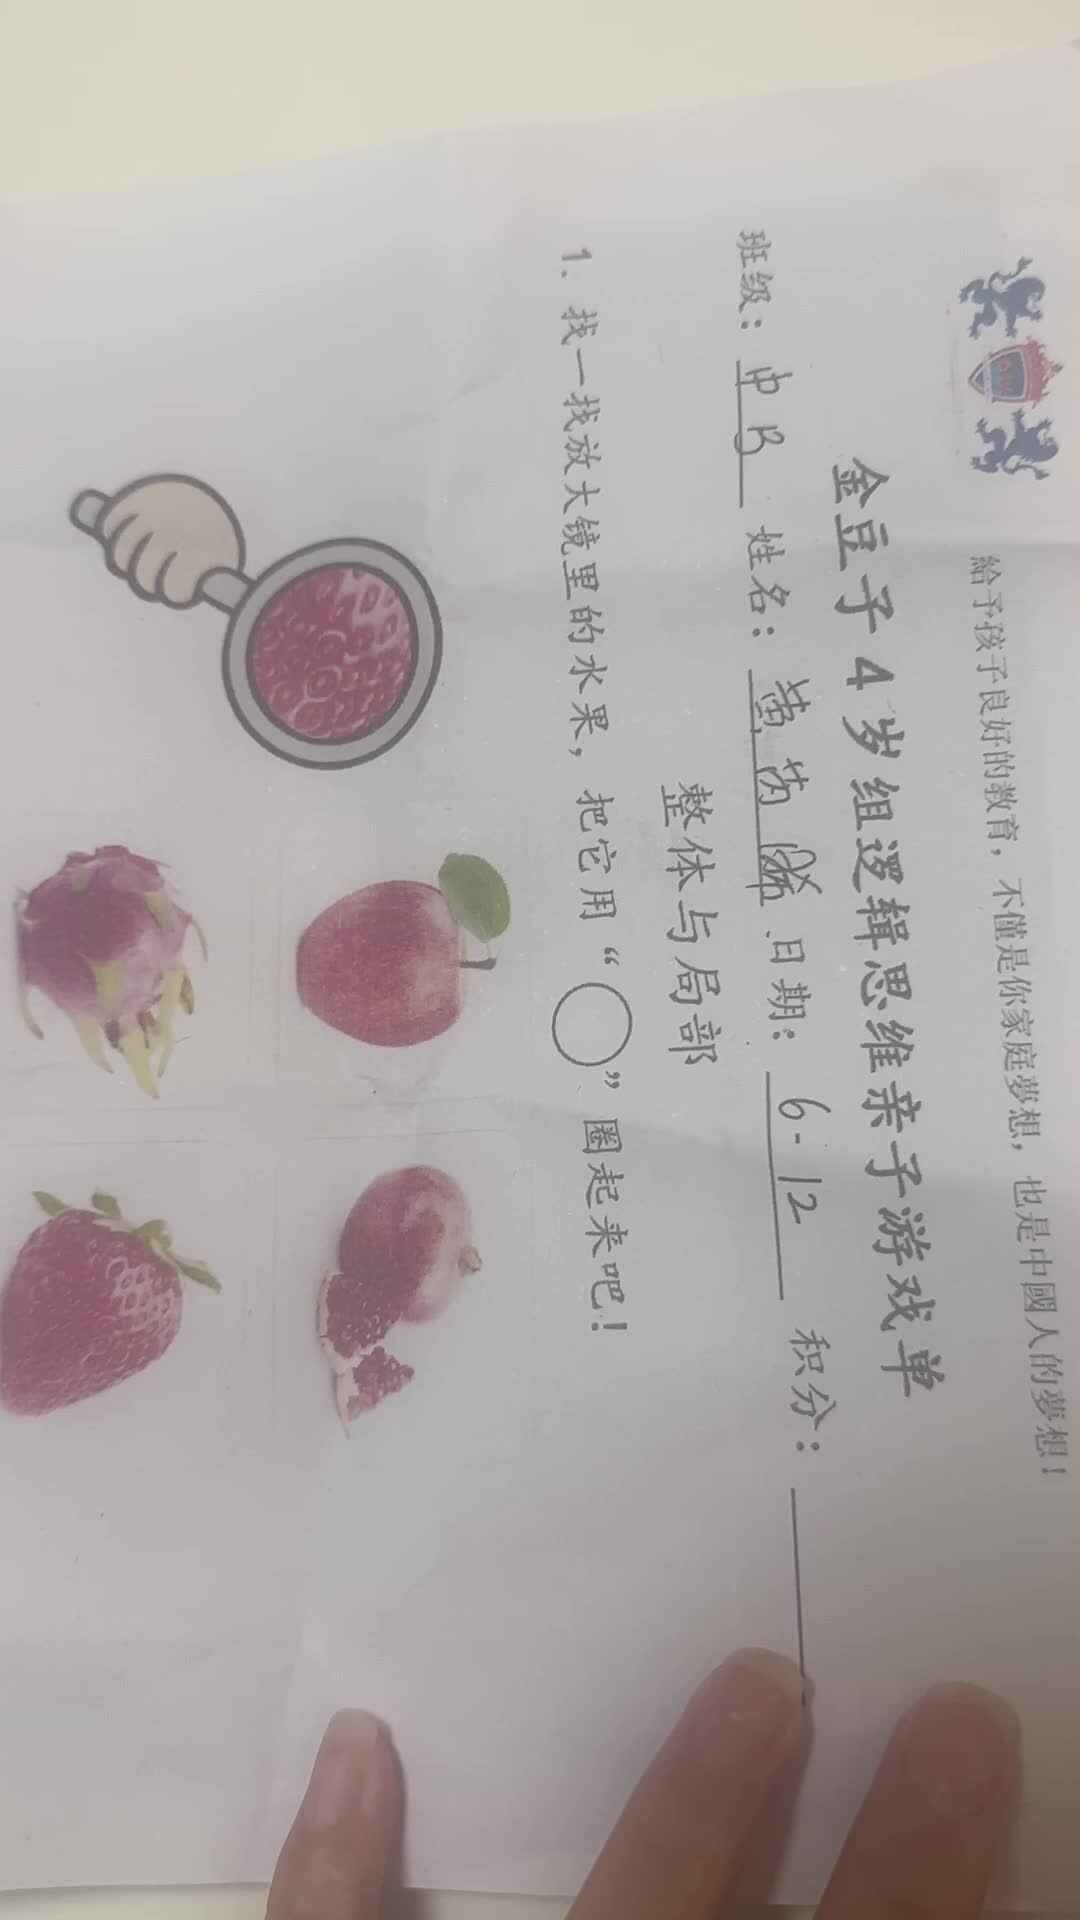 給予孩子良好的教育，不僅是你家庭夢想，也是中國人的夢想！
金豆子4岁组逻辑思维亲子游戏单
班级：中B 姓名：黄芮 日期：6-12 积分：
整体与局部
1、找一找放大镜里的水果，把它用“○”圈起来吧！